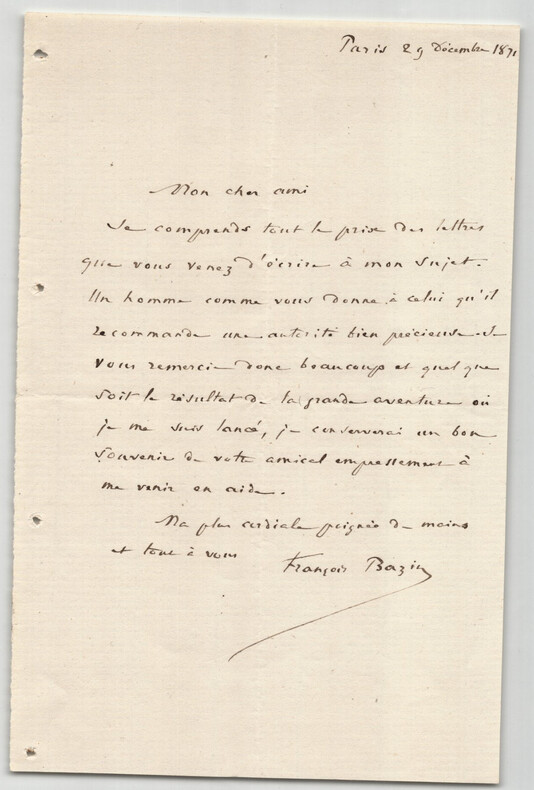 Paris 29 Décembre 1871
Mon cher ami
Je comprends tout le prix des lettres
que vous venez d'écrire à mon sujet.
Un homme comme vous donne à celui qu'il
recommande une autorité bien précieuse. Je
vous remercie donc beaucoup et quel que
soit le résultat de la grande aventure où
je me suis lancé, je conserverai un bon
souvenir de votre amical empressement à
me venir en aide.
Ma plus cordiale poignée de mains
et tout à vous
François Bazin